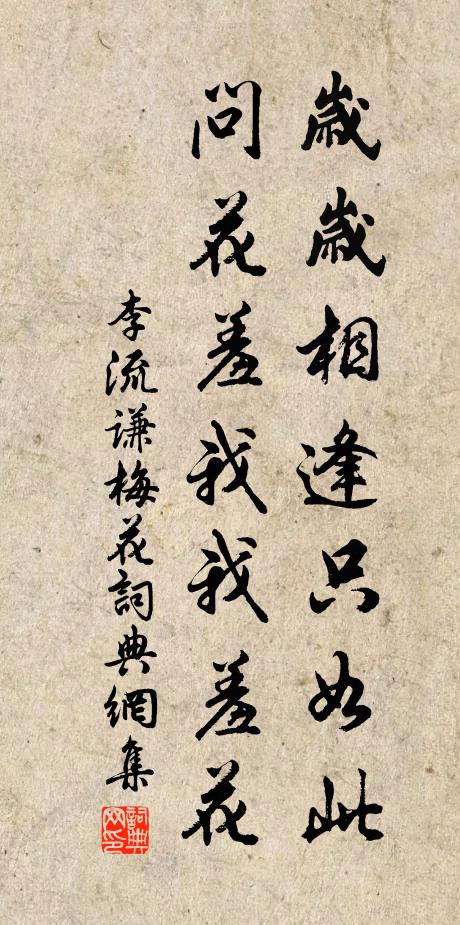 歲歲相逢只如此
問花羞我我羞花
李流謙梅花詞典網集
詞典网印